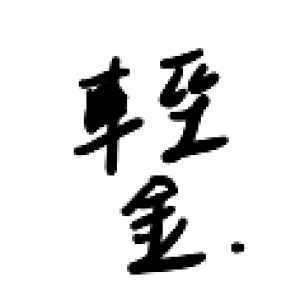 輕
金.